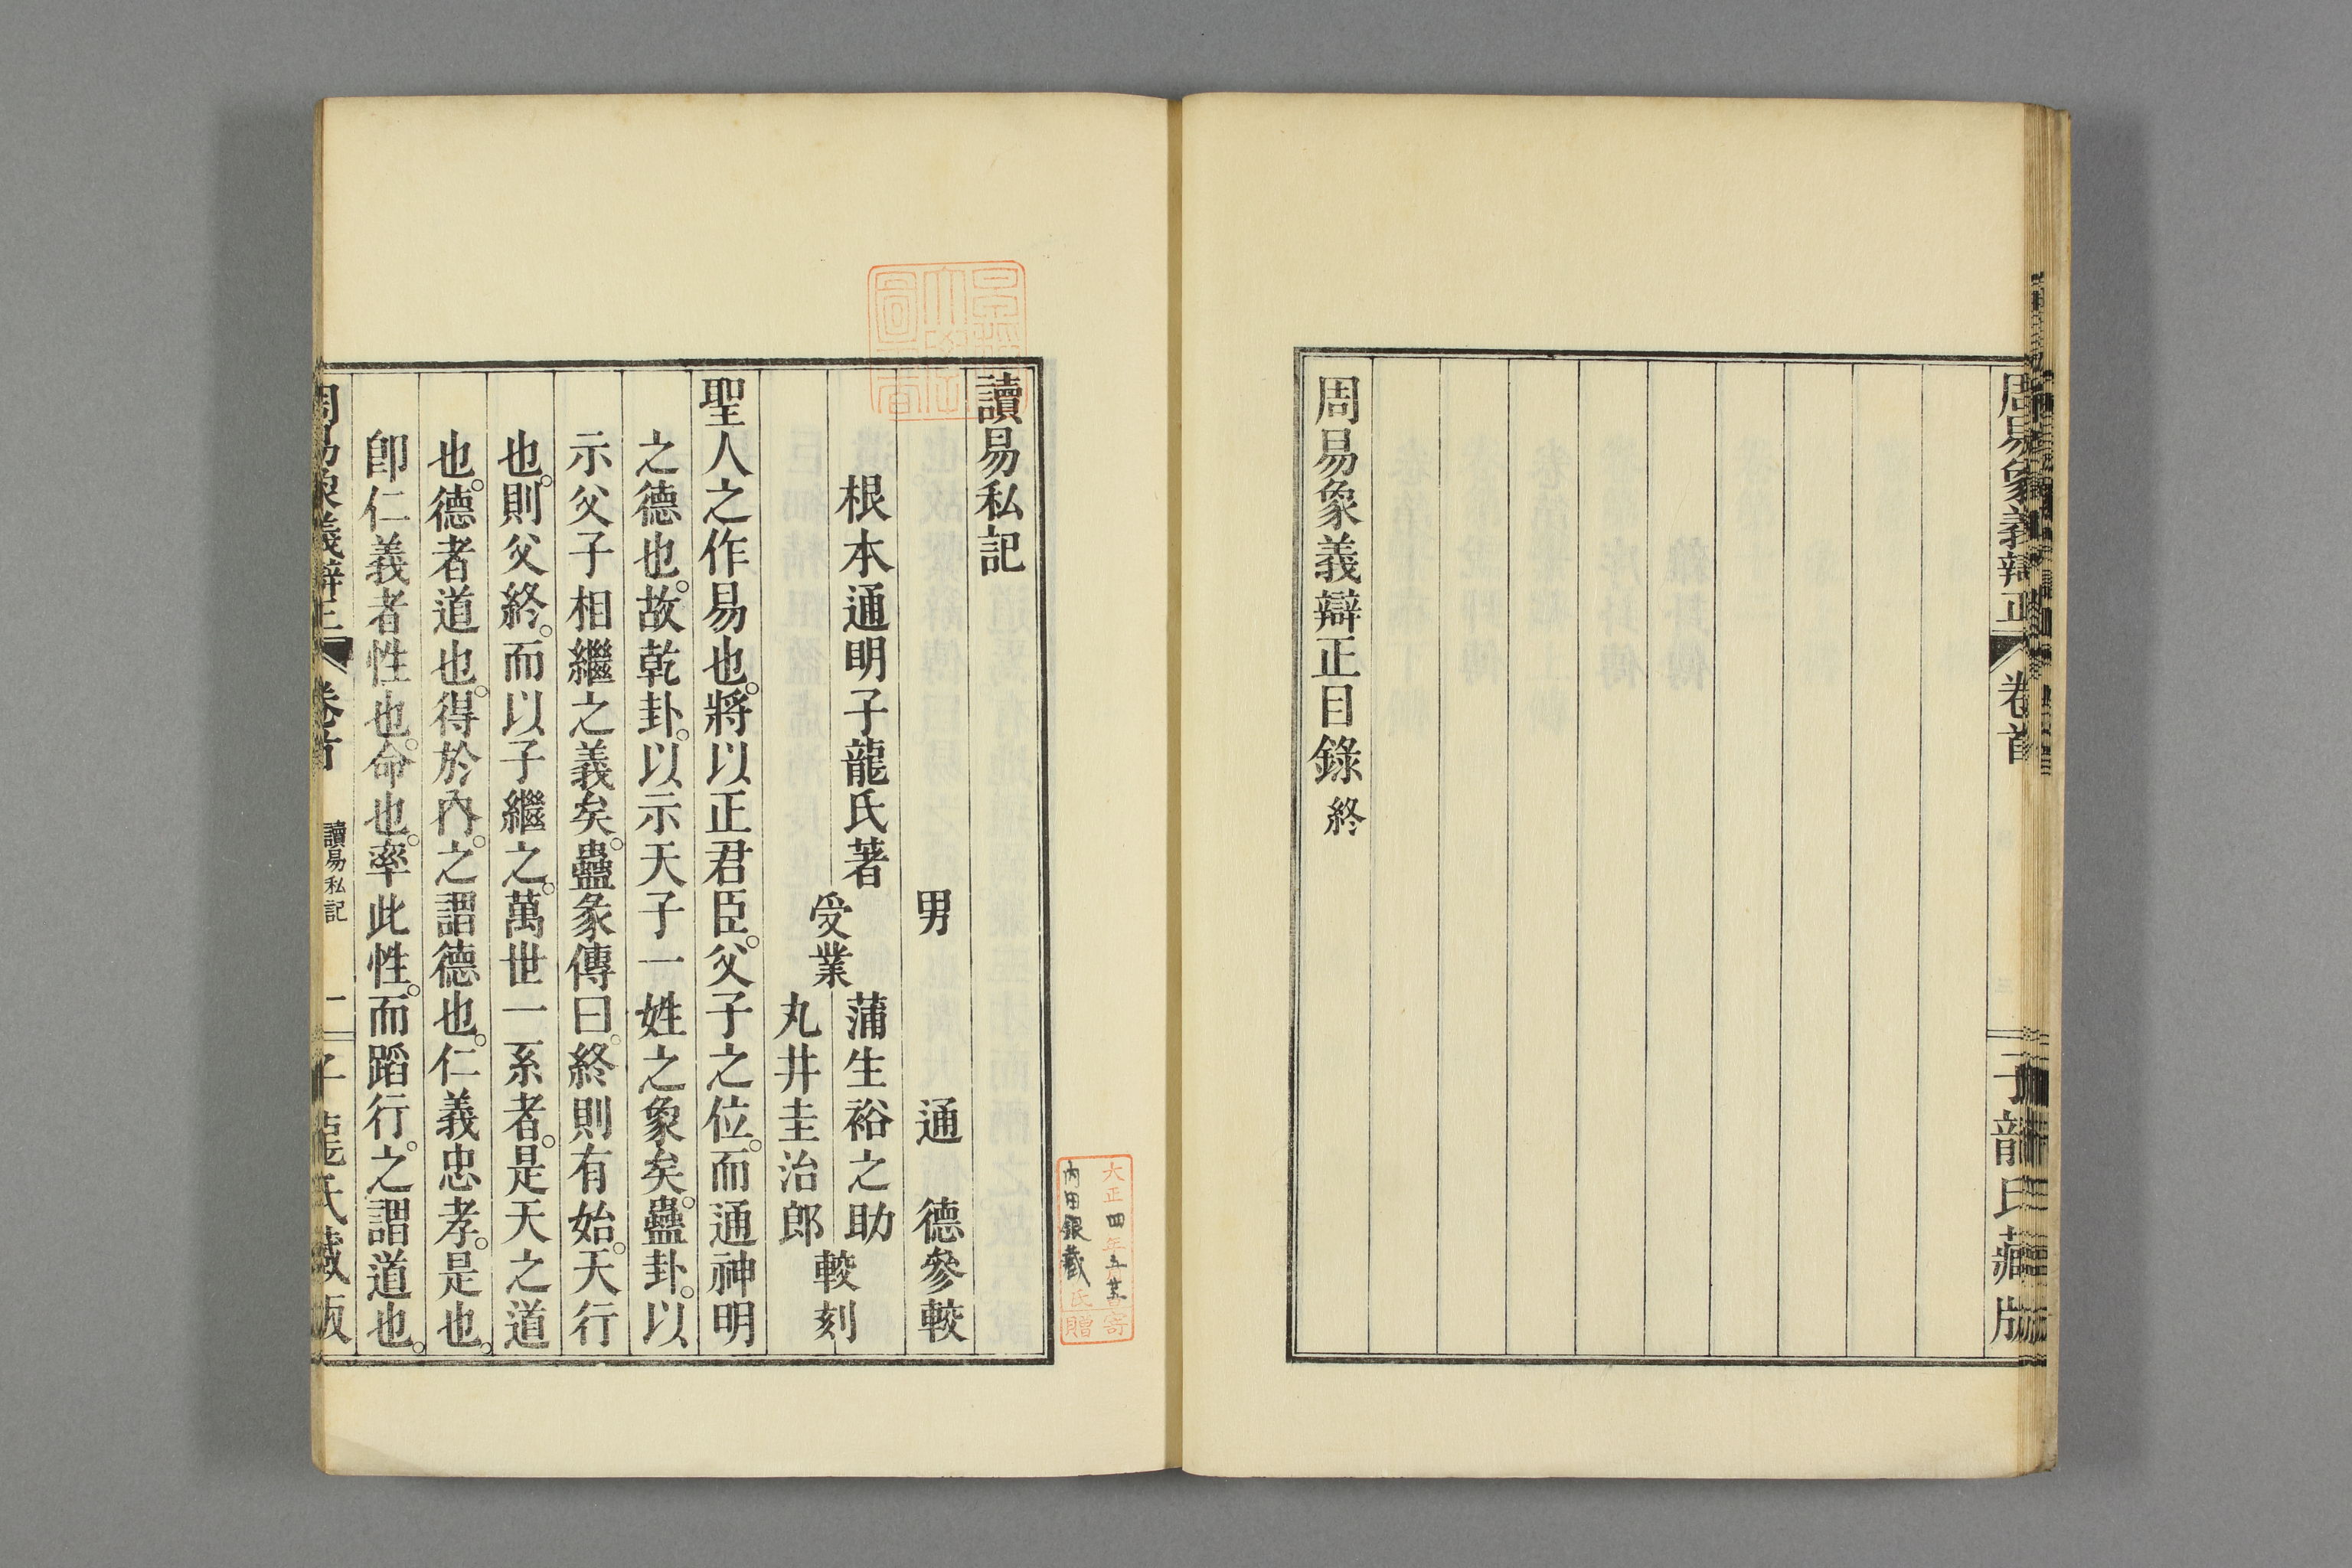 周易象義辯正
卷首
子龍氏藏版
周易象義辯正目錄終
讀易私記
男　通　德參較
根本通明子龍氏著
受業
蒲生裕之助
丸井圭治郎
較刻
聖人之作易也。將以正君臣。父子之位。而通神明
之德也。故乾卦。以示天子一姓之象矣。蠱卦。以
示父子相繼之義矣。蠱彖傳曰。終則有始。天行
也。則父終。而以子繼之。萬世一系者。是天之道
也。德者道也。得於內。之謂德也。仁義忠孝。是也。
卽仁義者性也。命也。率此性。而蹈行。之謂道也。
周易象義辯正
卷首
讀易私記
一
子龍氏藏版
大正四年
寄
內田銀藏
氏
贈